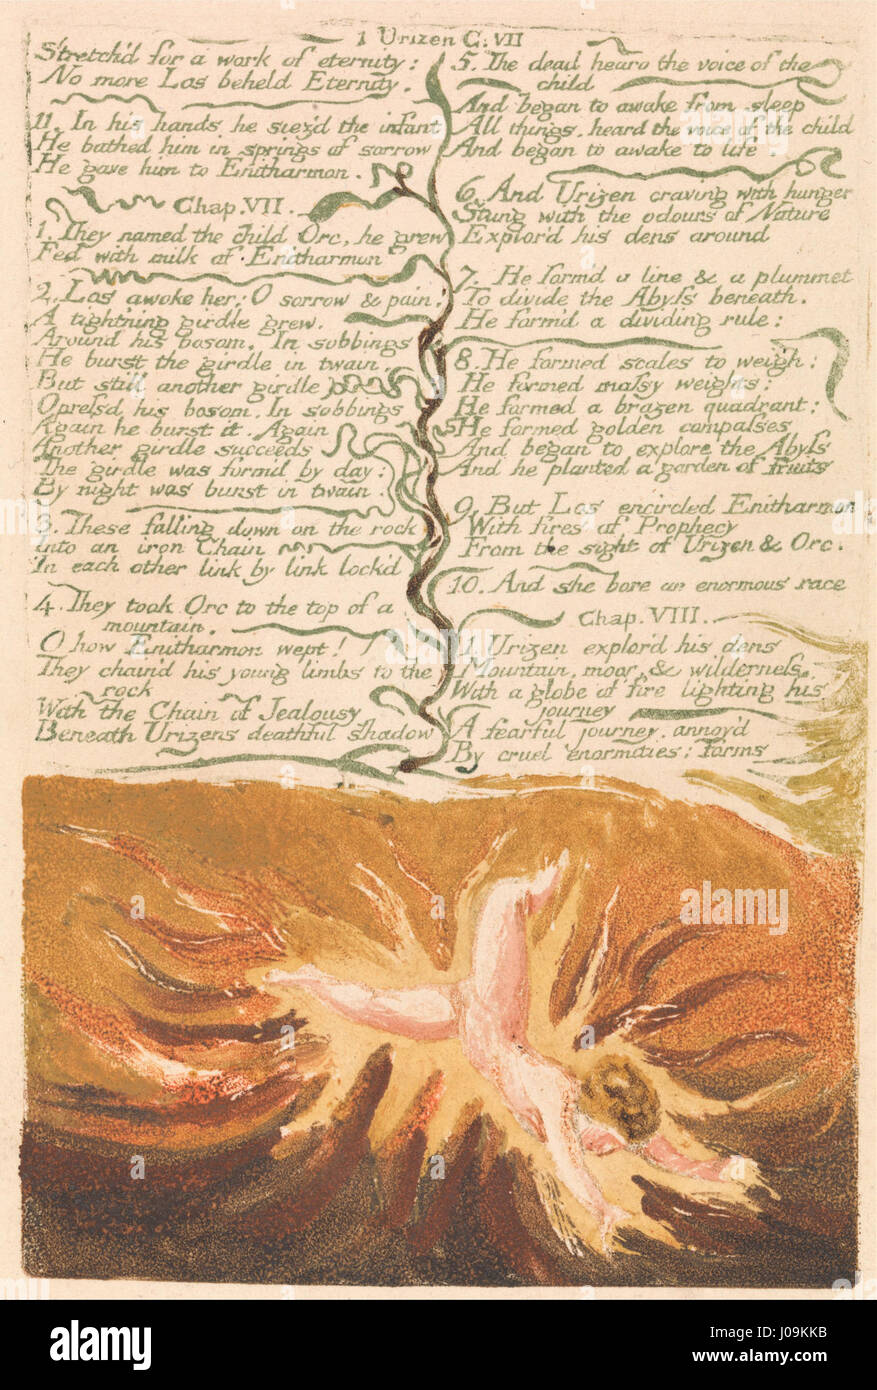 1 Urizen C: VII
Stretch'd for a work of eternity:
No more Los beheld Eternity.
11. In his hands he siez'd the infant
He bathed him in springs of sorrow
He gave him to Enitharmon.
Chap. VII.
1. They named the child Orc, he grew
Fed with milk of Enitharmon
2. Los awoke her; O sorrow & pain!
A tight'ning girdle grew,
Around his bosom. In sobbings
He burst the girdle in twain,
But still another girdle
Opress'd his bosom. In sobbings
Again he burst it. Again
Another girdle succeeds
The girdle was form'd by day:
By night was burst in twain.
3. These falling down on the rock
Into an iron Chain
In each other link by link lock'd
4. They took Orc to the top of a
mountain.
O how Enitharmon wept!
They chain'd his young limbs to the
rock
With the Chain of Jealousy
Beneath Urizens deathful shadow
5. The dead heard the voice of the
child
And began to awake from sleep
All things. heard the voice of the child
And began to awake to life.
6. And Urizen craving with hunger
Stung with the odours of Nature
Explor'd his dens around
7. He form'd a line & a plummet
To divide the Abyſs beneath.
He form'd a dividing rule:
8. He formed scales to weigh:
He formed maſsy weights:
He formed a brazen quadrant:
He formed golden compaſses
And began to explore the Abyſs
And he planted a garden of fruits
9. But Los encircled Enitharmon
With fires of Prophecy
From the sight of Urizen & Orc.
10. And she bore an enormous race
Chap. VIII.
1. Urizen explor'd his dens
Mountain, moor, & wilderneſs,
With a globe of fire lighting his
journey
A fearful journey, annoy'd
By cruel enormities: forms
alamy stock photo
alamy
J09KKB
www.alamy.com